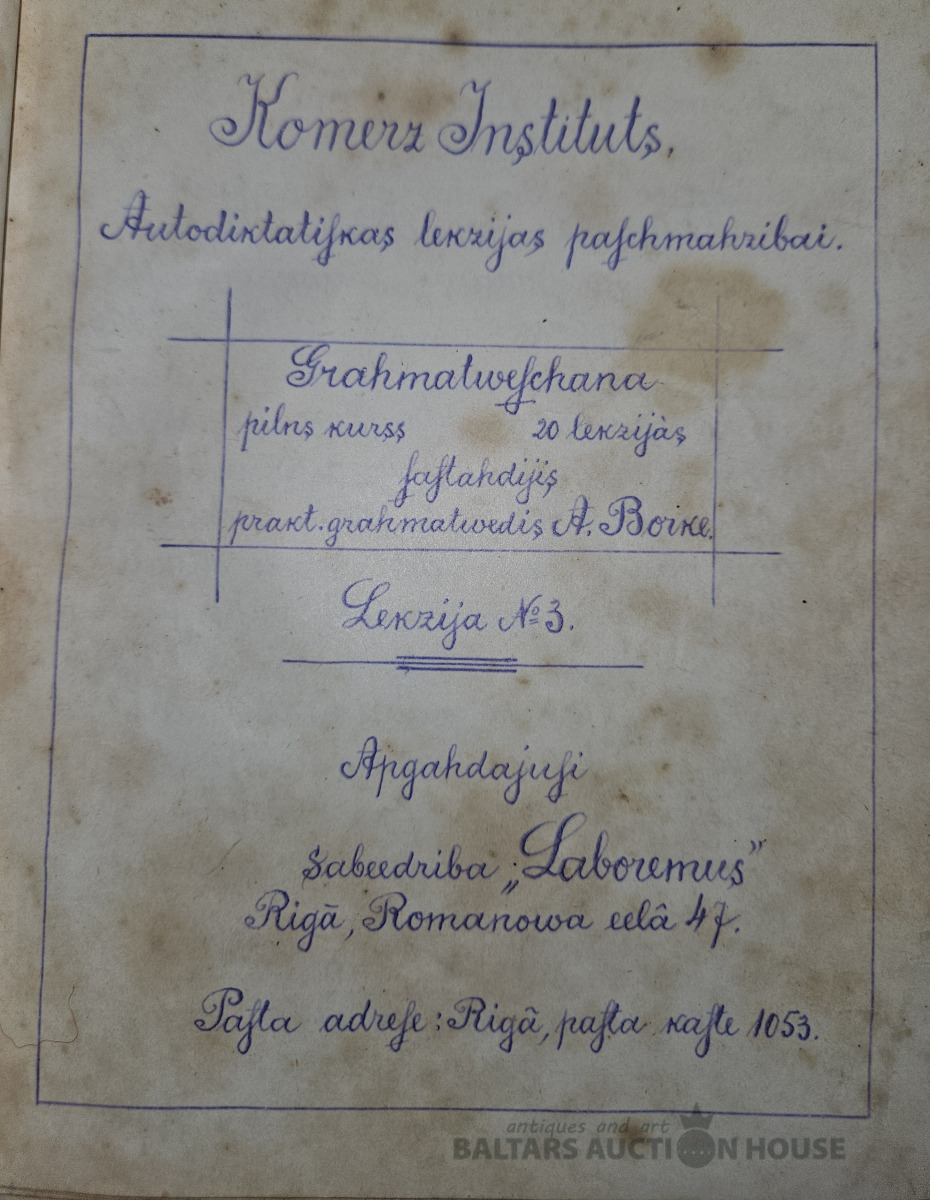 Komerz Instituts,
Autodiktatiſkas lekzijas paſchmahzibai.
Grahmatweſchana
pilns kurss 20 lekzijàs
ſaſtahdijis
prakt. grahmatwedis A. Borke.
Lekzija № 3.
Apgahdajuſi
Sabeedriba „Laboremus”
Rigā, Romanowa eelâ 47.
Paſta adreſe: Rigā, paſta kaſte 1053.
antiques and art
BALTARS AUCTION HOUSE